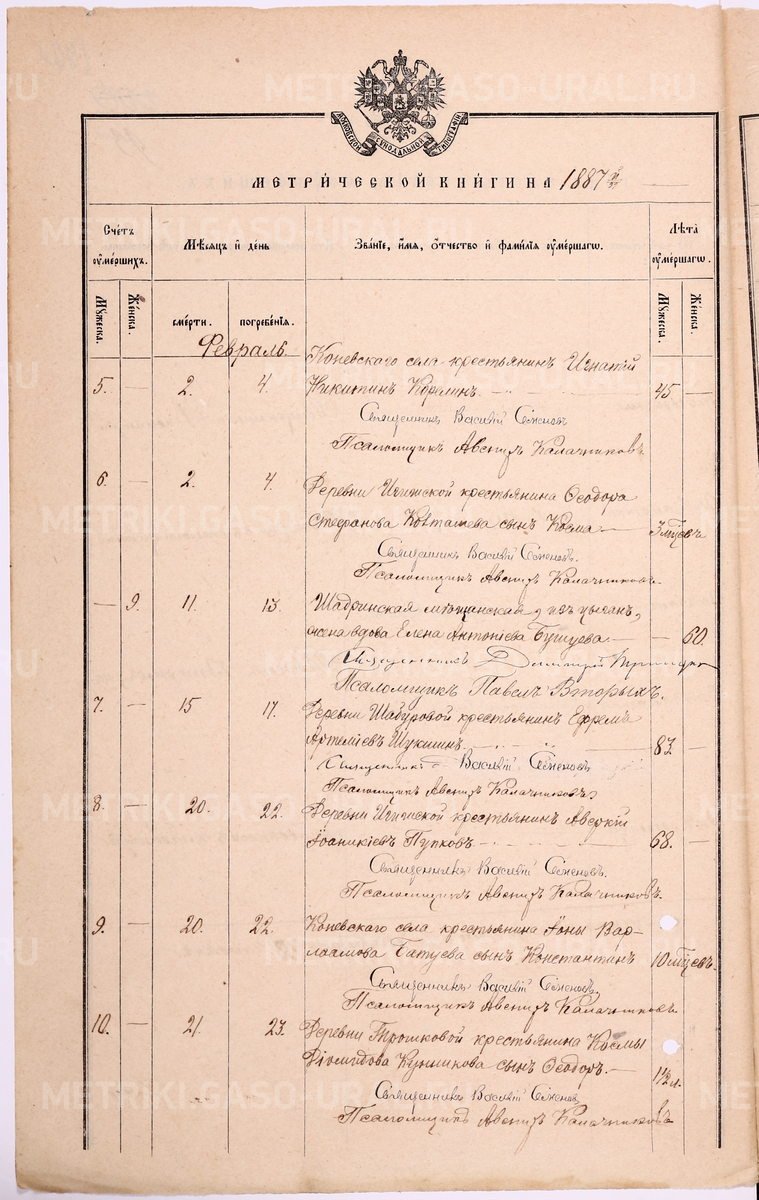 МОСКОВСКОЙ СУНОДАЛЬНОЙ ТИПОГРАФІИ
МЕТРИ́ЧЕСКОЙ КНИ́ГИ НА 1887 й
Сче́тъ ᲂу҆ме́ршихъ.
Мѣ́сяцъ и҆ де́нь
Зва́ніе, и҆́мя, ѻ҆́тчество и҆ фами́лія ᲂу҆ме́ршагѡ.
Лѣ́та ᲂу҆ме́ршагѡ.
Мꙋ́жеска.
Же́нска.
сме́рти.
погребе́нїѧ.
Мꙋ́жеска.
Же́нска.
Февраль.
Коневскаго села крестьянинъ Игнатій
5. — 2. 4. Никитинъ Корелинъ. 45 —
Священникъ Василій Сѣменовъ
Псаломщикъ Авениръ Калачниковъ
6. — 2. 4. Деревни Игишской крестьянина Ѳеодора
Стефанова сынъ Косма — 3 мѣсяц.
Священникъ Василій Сѣменовъ.
Псаломщикъ Авениръ Калачниковъ.
— 9. 11. 13. Шадринская мѣщанская, изъ цыганъ,
жена вдова Елена Антоніева Бушуева — — 60.
Священникъ Димитрій
Псаломщикъ Павелъ Вторыхъ.
7. — 15 17. Деревни Шабуровой крестьянинъ Ефремъ
Артеміевъ Шукшинъ. 83. —
Священникъ Василій Сѣменовъ
Псаломщикъ Авениръ Калачниковъ
8. — 20. 22. Деревни Игишской крестьянинъ Аверкій
Іоаникіевъ Пупковъ. 68. —
Священникъ Василій Сѣменовъ.
Псаломщикъ Авениръ Калачниковъ.
9. — 20. 22. Коневскаго села крестьянина Іоны Вар-
лаамова Батуева сынъ Константинъ 10 мѣсяц.
Священникъ Василій Сѣменовъ
Псаломщикъ Авениръ Калачниковъ
10. — 21. 23. Деревни Трошковой крестьянина Космы
Діомидова Куншикова сынъ Ѳеодоръ. — 1½ л.
Священникъ Василій Сѣменовъ
Псаломщикъ Авениръ Калачниковъ
METRIKI.GASO-URAL.RU